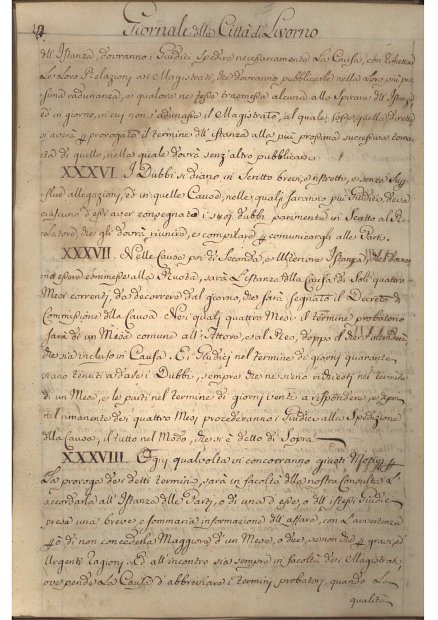 Giornale della Città di Livorno
dell'Istanza, dovranno i Giudici spedire necessariamente La Causa, con
Le Loro Relazioni a i Magistrati, che dovranno pubblicarle nella Loro più pros
sima radunanza, e qualora ne fosse trasmessa alcuna allo Spirare dell'Istanza
ed in giorno, in cui non s'adunasse il Magistrato, al quale fosse diretta
si averà prorogato il termine dell'istanza alla più prossima successiva torna
ta di quello, nella quale dovrà senz'altro pubblicarsi
XXXVI. I Dubbi si diano in Scritto brevi, e ristretti, e senza Super
flue allegazioni, ed in quelle Cause, nelle quali saranno più Giudici, deva
ciascuno d'essi aver consegnato i suoi dubbi parimente in Scritto al Re
latore, che gli dovrà riunire, e compilare per comunicargli alle Parti.
XXXVII. Nelle Cause poi di Seconda, o Ulteriore Istanza, che dovran
no essere commesse alla Ruota, sarà L'istanza della Causa di Soli quattro
Mesi correnti, da decorrere dal giorno, che sarà segnato il Decreto di
Commissione della Causa. Nei quali quattro Mesi il termine probatorio
sarà di un Mese comune all'Attore, e al Reo, doppo
che sia incluso in Causa. E i Giudici nel termine di giorni quaranta
siano tenuti a dare i Dubbi, sempre che ne sieno richiesti nel termine
di un Mese, e le parti nel termine di giorni venti a rispondere, e dipoi
nel rimanente dei quattro Mesi procederanno i Giudici alla Spedizione
della Causa, il tutto nel Modo, che si è detto di Sopra
XXXVIII. Ogni qualvolta vi concorranno giusti Motivi per
La proroga dei detti termini, sarà in facoltà della nostra Consulta L'
accordarla all'Istanza delle Parti, o di una d'esse, o dell'istessi Giudici
presa una breve, e sommaria informazione dell'affare, con L'avvertenza
però di non concederla Maggiore d'un Mese, o due, se non che per gravi, ed
Urgenti ragioni. E all'incontro sia sempre in facoltà dei Magistrati,
ove pende La Causa d'abbreviare i termini probatori, quando La
qualità